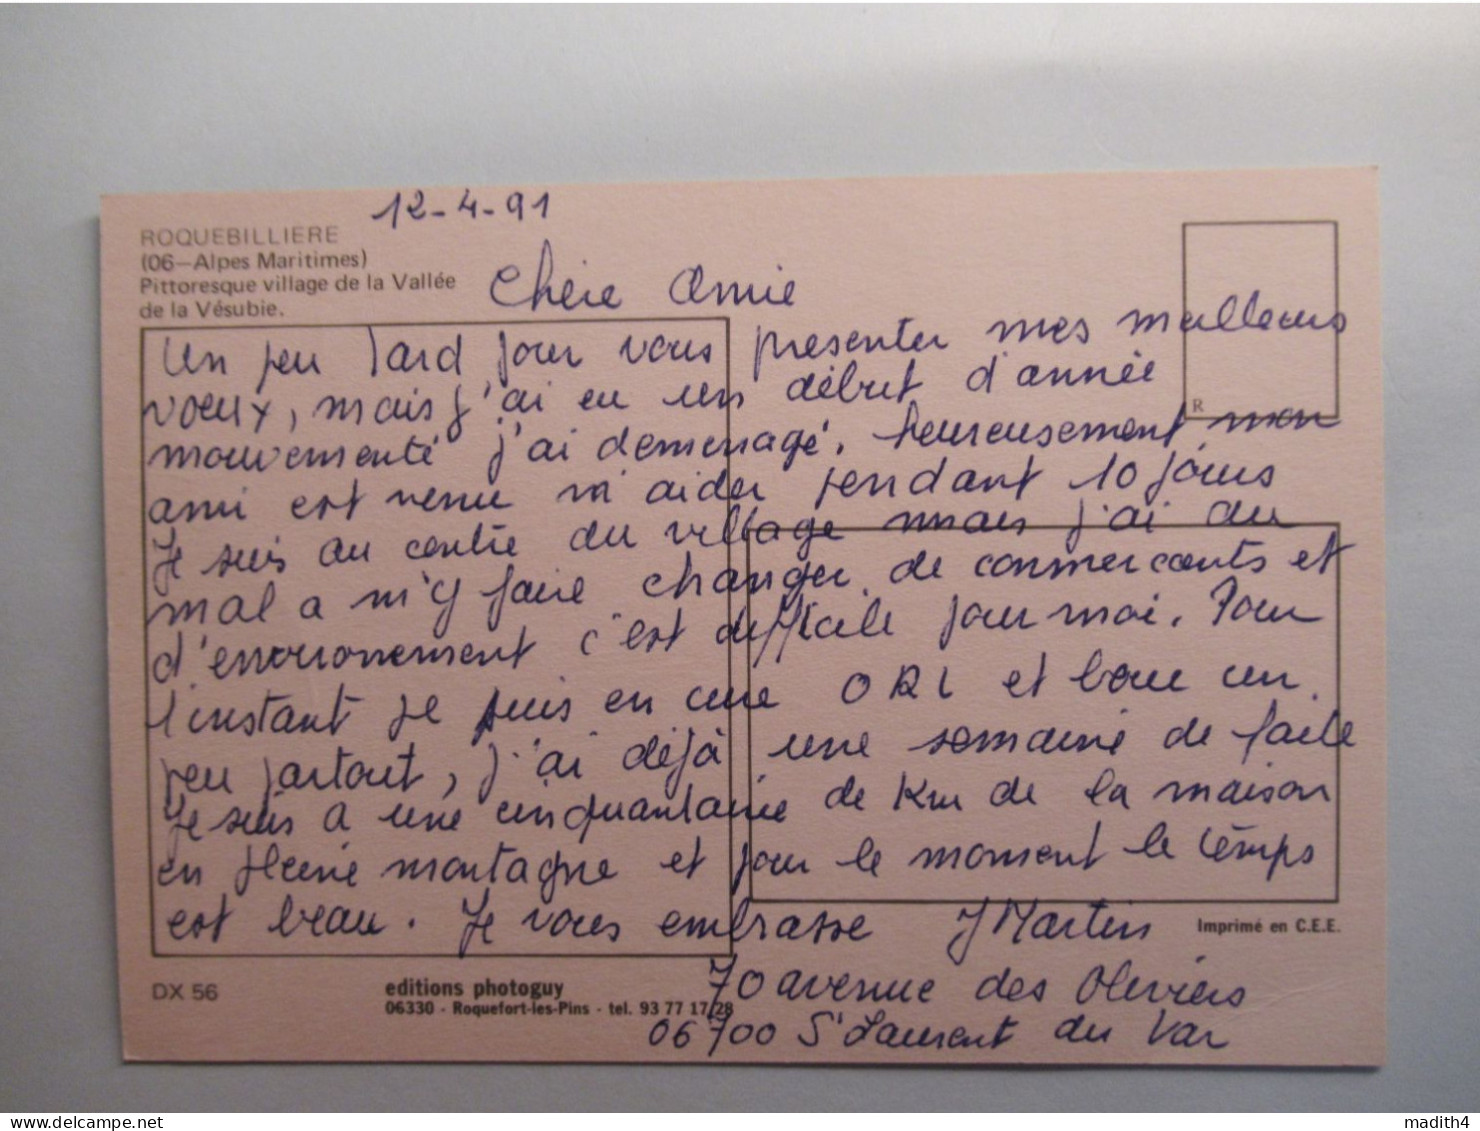 12-4-91
ROQUEBILLIERE
(06—Alpes Maritimes)
Pittoresque village de la Vallée
de la Vésubie.
Chère Amie
Un peu tard pour vous présenter mes meilleurs
voeux, mais j'ai eu un début d'année
mouvementé j'ai demenagé. heureusement mon
ami est venu m'aider pendant 10 jours
Je suis au centre du village mais j'ai du
mal a m'y faire changer de commercants et
d'environnement c'est difficile pour moi. Pour
l'instant je suis en cure ORL et boue un
peu partout, j'ai déjà une semaine de faite
Je suis a une cinquantaine de Km de la maison
en pleine montagne et pour le moment le temps
est beau. Je vous embrasse J Martin
70 avenue des Oliviers
06700 St Laurent du Var
R
Imprimé en C.E.E.
DX 56
editions photoguy
06330 - Roquefort-les-Pins - tel. 93 77 17/28
delcampe.net
madith4